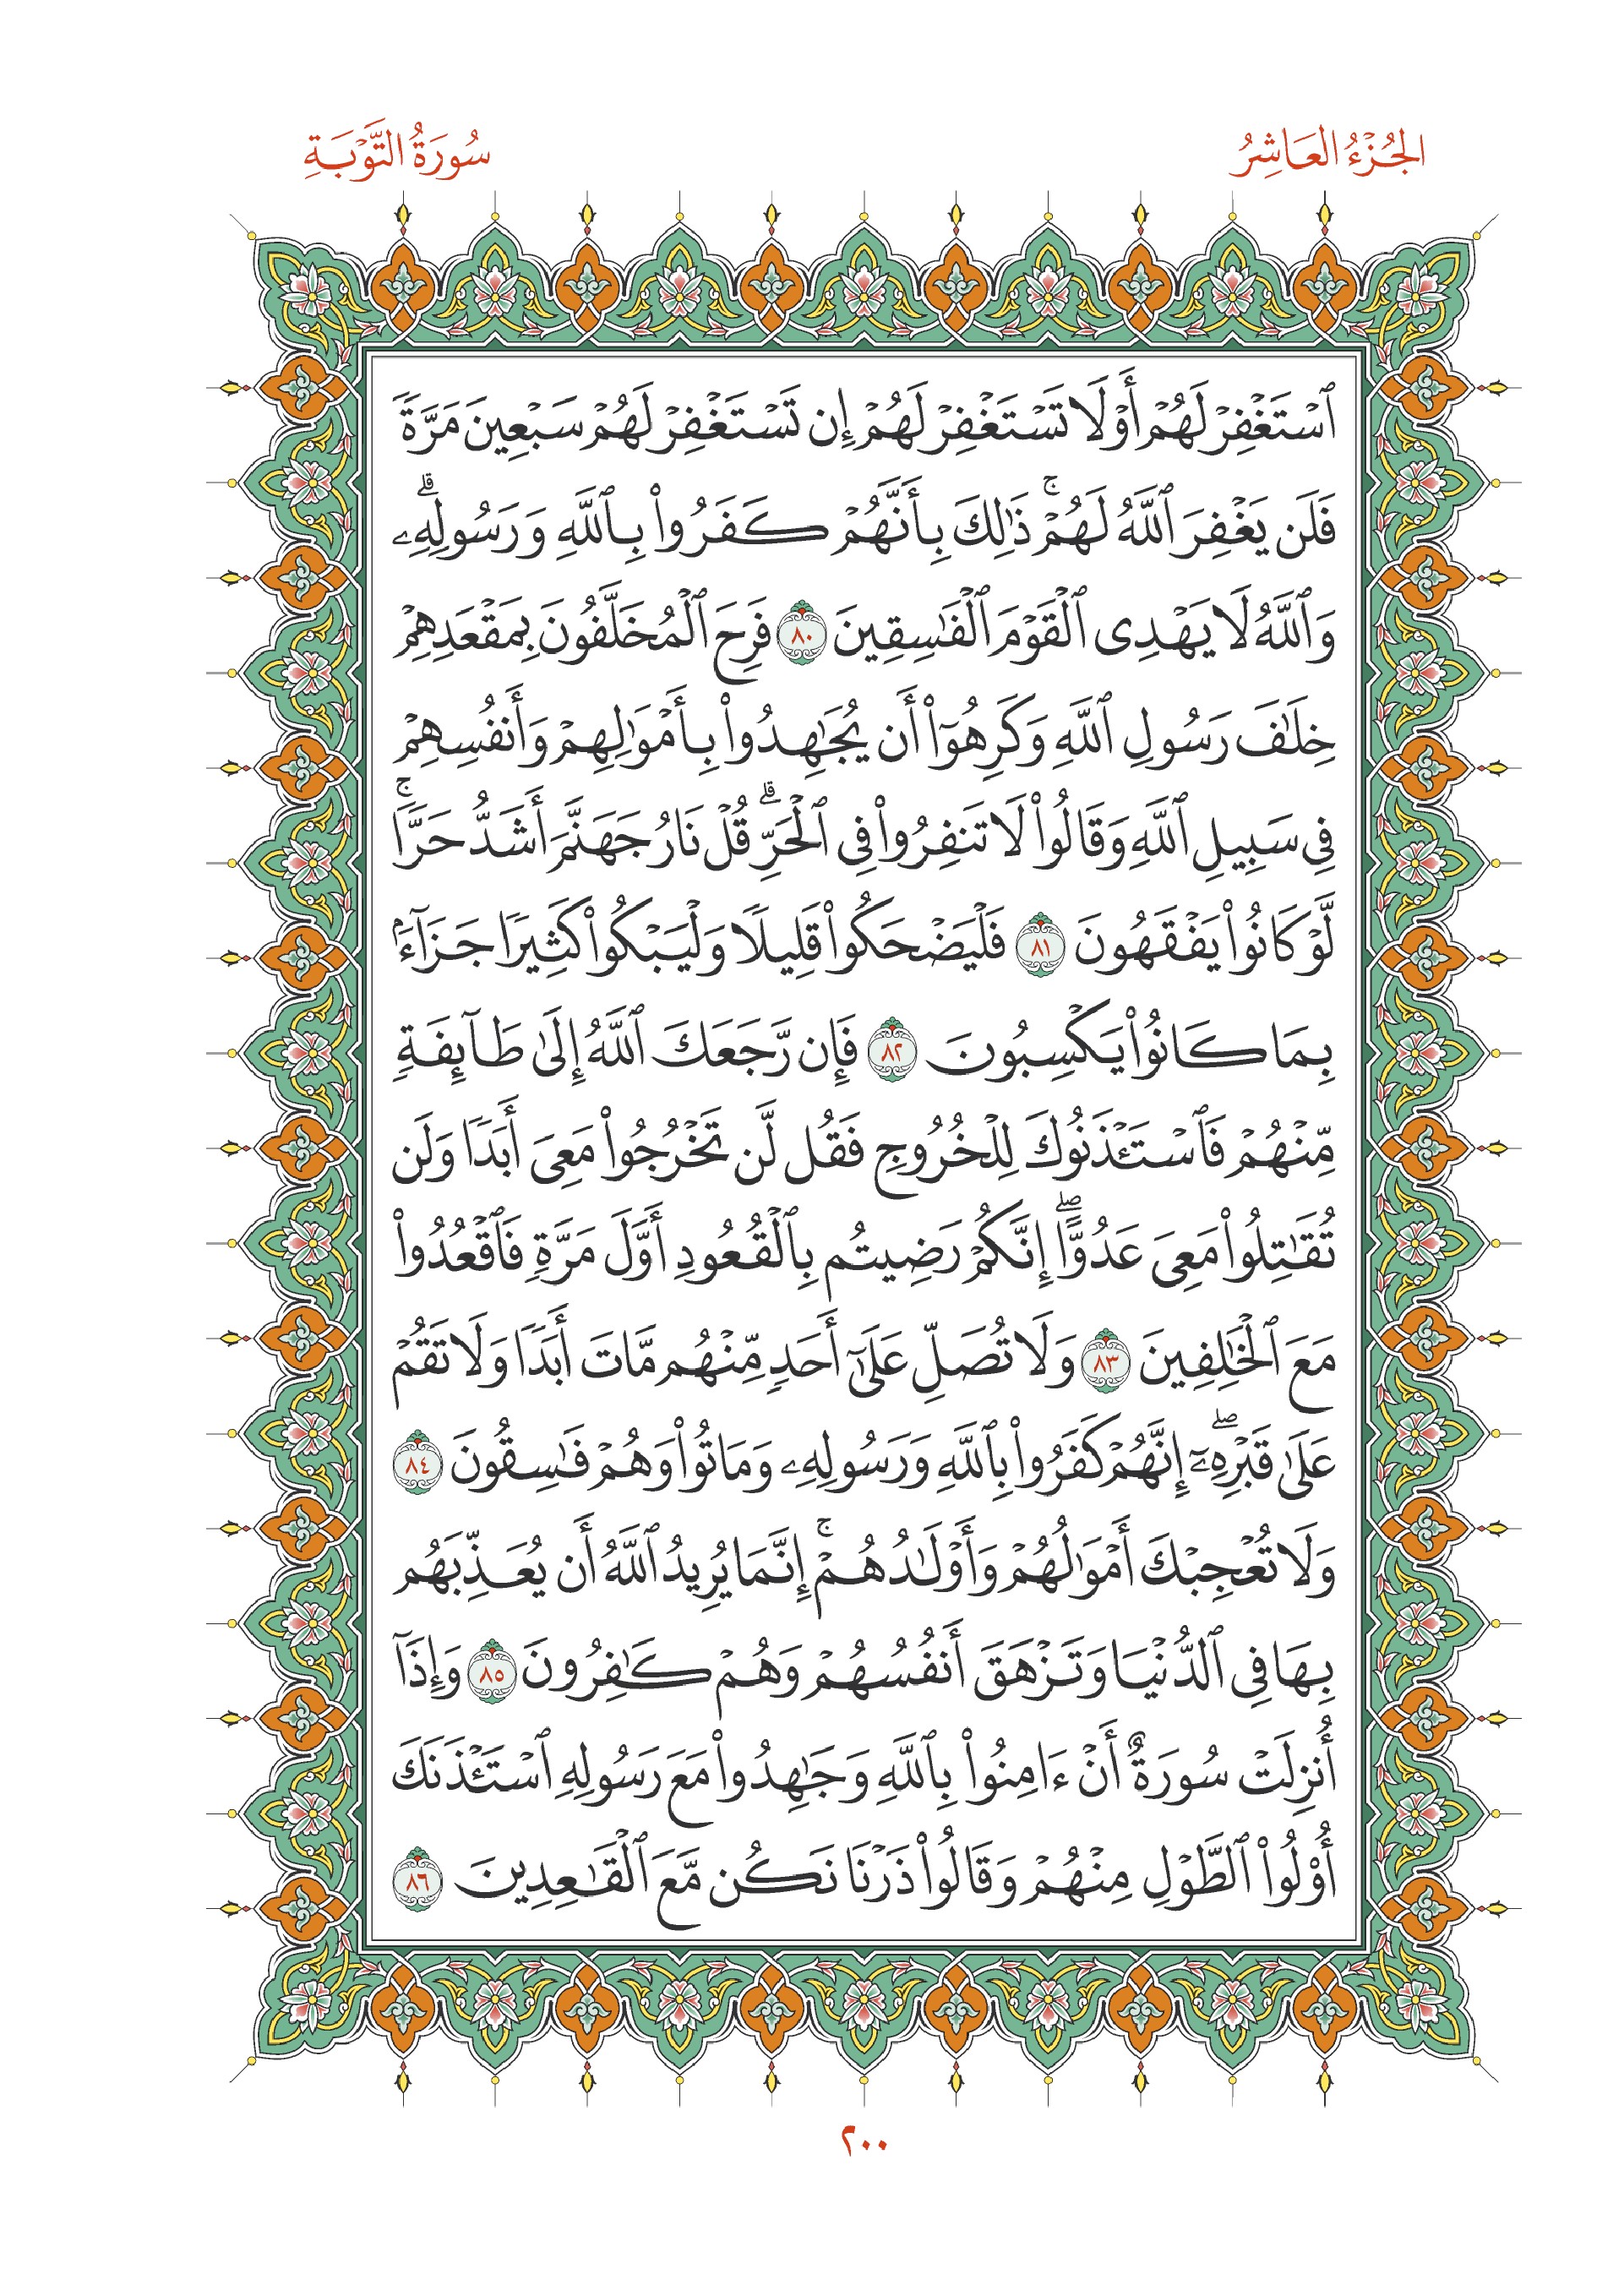 الجُزْءُ العَاشِرُ
سُورَةُ التَّوْبَةِ
ٱسْتَغْفِرْ لَهُمْ أَوْ لَا تَسْتَغْفِرْ لَهُمْ إِن تَسْتَغْفِرْ لَهُمْ سَبْعِينَ مَرَّةً
فَلَن يَغْفِرَ ٱللَّهُ لَهُمْۚ ذَٰلِكَ بِأَنَّهُمْ كَفَرُوا۟ بِٱللَّهِ وَرَسُولِهِۦۗ
وَٱللَّهُ لَا يَهْدِى ٱلْقَوْمَ ٱلْفَٰسِقِينَ ٨٠ فَرِحَ ٱلْمُخَلَّفُونَ بِمَقْعَدِهِمْ
خِلَٰفَ رَسُولِ ٱللَّهِ وَكَرِهُوٓا۟ أَن يُجَٰهِدُوا۟ بِأَمْوَٰلِهِمْ وَأَنفُسِهِمْ
فِى سَبِيلِ ٱللَّهِ وَقَالُوا۟ لَا تَنفِرُوا۟ فِى ٱلْحَرِّۗ قُلْ نَارُ جَهَنَّمَ أَشَدُّ حَرًّاۚ
لَّوْ كَانُوا۟ يَفْقَهُونَ ٨١ فَلْيَضْحَكُوا۟ قَلِيلًا وَلْيَبْكُوا۟ كَثِيرًا جَزَآءًۢ
بِمَا كَانُوا۟ يَكْسِبُونَ ٨٢ فَإِن رَّجَعَكَ ٱللَّهُ إِلَىٰ طَآئِفَةٍ
مِّنْهُمْ فَٱسْتَـْٔذَنُوكَ لِلْخُرُوجِ فَقُل لَّن تَخْرُجُوا۟ مَعِىَ أَبَدًا وَلَن
تُقَٰتِلُوا۟ مَعِىَ عَدُوًّاۖ إِنَّكُمْ رَضِيتُم بِٱلْقُعُودِ أَوَّلَ مَرَّةٍ فَٱقْعُدُوا۟
مَعَ ٱلْخَٰلِفِينَ ٨٣ وَلَا تُصَلِّ عَلَىٰٓ أَحَدٍ مِّنْهُم مَّاتَ أَبَدًا وَلَا تَقُمْ
عَلَىٰ قَبْرِهِۦٓۖ إِنَّهُمْ كَفَرُوا۟ بِٱللَّهِ وَرَسُولِهِۦ وَمَاتُوا۟ وَهُمْ فَٰسِقُونَ ٨٤
وَلَا تُعْجِبْكَ أَمْوَٰلُهُمْ وَأَوْلَٰدُهُمْۚ إِنَّمَا يُرِيدُ ٱللَّهُ أَن يُعَذِّبَهُم
بِهَا فِى ٱلدُّنْيَا وَتَزْهَقَ أَنفُسُهُمْ وَهُمْ كَٰفِرُونَ ٨٥ وَإِذَآ
أُنزِلَتْ سُورَةٌ أَنْ ءَامِنُوا۟ بِٱللَّهِ وَجَٰهِدُوا۟ مَعَ رَسُولِهِ ٱسْتَـْٔذَنَكَ
أُو۟لُوا۟ ٱلطَّوْلِ مِنْهُمْ وَقَالُوا۟ ذَرْنَا نَكُن مَّعَ ٱلْقَٰعِدِينَ ٨٦
٢٠٠